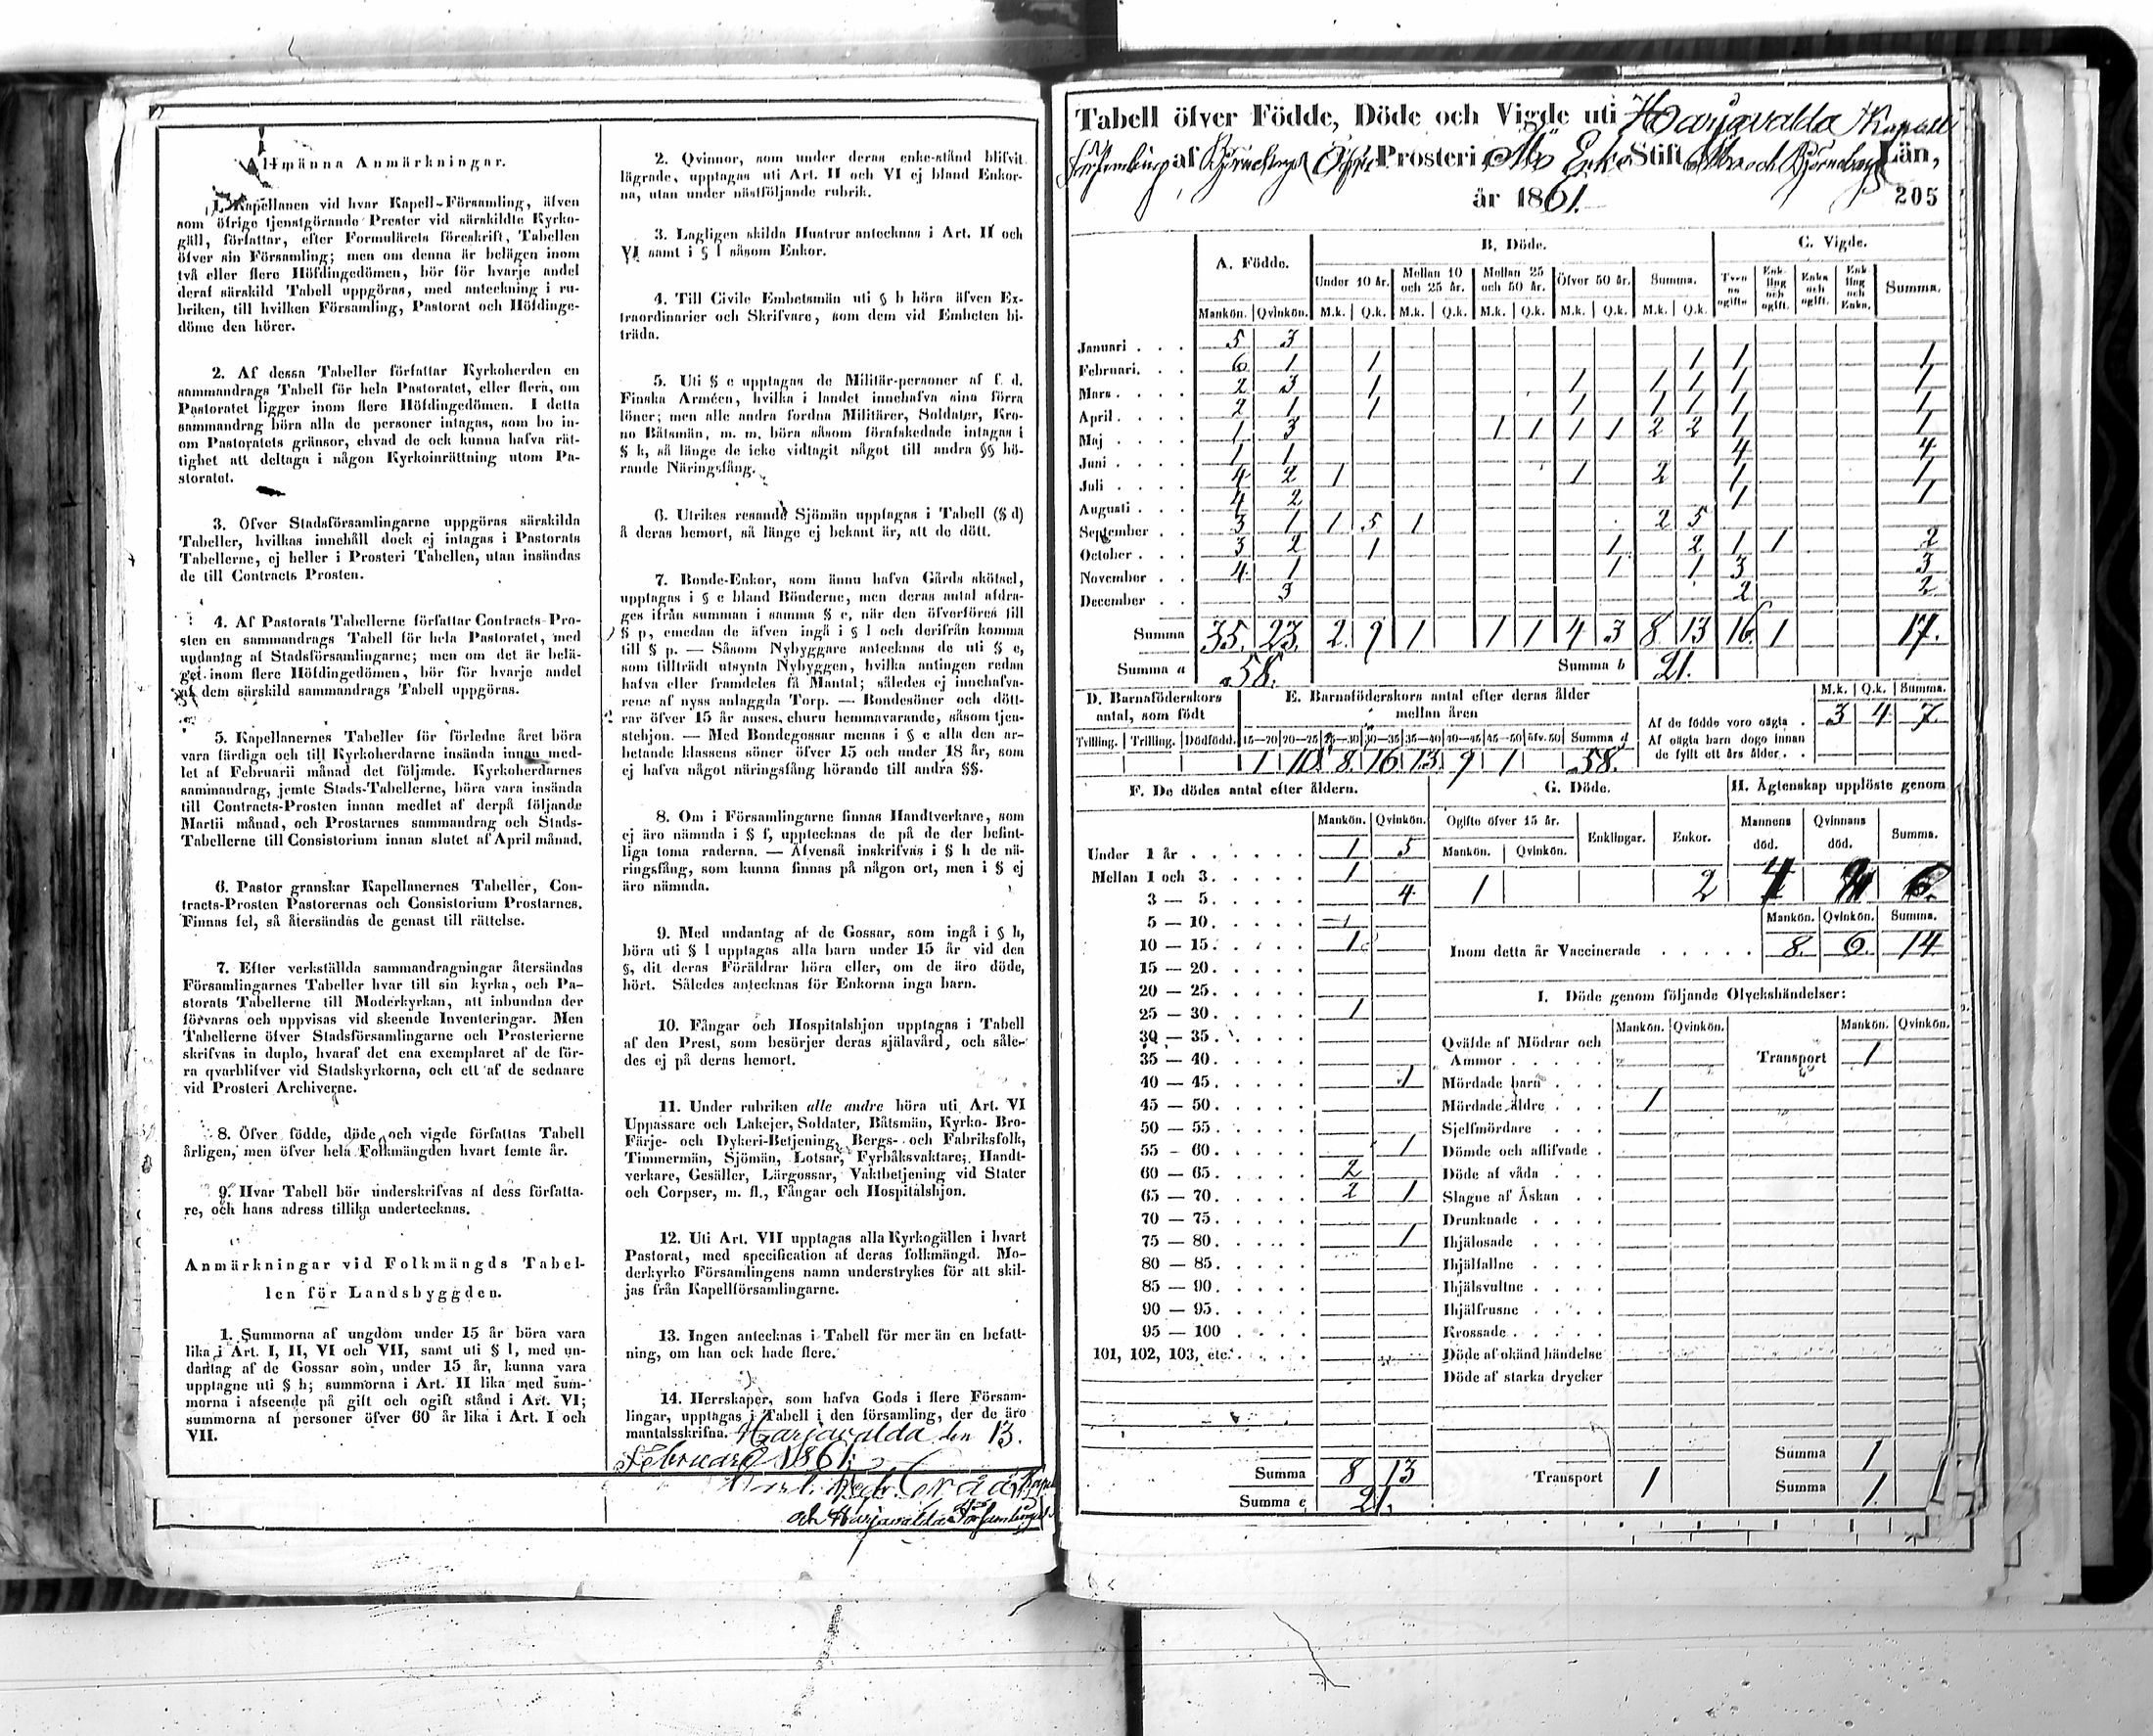 Allmänna Anmärkningar.
1. Kapellanen vid hvar Kapell-Församling, äfven
som öfrige tjenstgörande Prester vid särskildte Kyrko-
gäll, författar, efter Formulärets föreskrift, Tabellen
öfver sin Församling; men om denna är belägen inom
två eller flere Höfdingedömen, bör för hvarje andel
deraf särskild Tabell uppgöras, med anteckning i ru-
briken, till hvilken Församling, Pastorat och Höfdinge-
döme den hörer.
2. Af dessa Tabeller författar Kyrkoherden en
sammandrags Tabell för hela Pastoratet, eller flera, om
Pastoratet ligger inom flere Höfdingedömen. I detta
sammandrag böra alla de personer intagas, som bo in-
om Pastoratets gränsor, ehvad de ock kunna hafva rät-
tighet att deltaga i någon Kyrkoinrättning utom Pa-
storatet.
3. Öfver Stadsförsamlingarne uppgöras särskilda
Tabeller, hvilkas innehåll dock ej intagas i Pastorats
Tabellerne, ej heller i Prosteri Tabellen, utan insändas
de till Contracts Prosten.
4. Af Pastorats Tabellerne författar Contracts-Pro-
sten en sammandrags Tabell för hela Pastoratet, med
undantag af Stadsförsamlingarne; men om det är belä-
get inom flere Höfdingedömen, bör för hvarje andel
af dem särskild sammandrags Tabell uppgöras.
5. Kapellanernes Tabeller för förledne året böra
vara färdiga och till Kyrkoherdarne insända innan med-
let af Februarii månad det följande. Kyrkoherdarnes
sammandrag, jemte Stads-Tabellerne, böra vara insända
till Contracts-Prosten innan medlet af derpå följande
Martii månad, och Prostarnes sammandrag och Stads-
Tabellerne till Consistorium innan slutet af April månad.
6. Pastor granskar Kapellanernes Tabeller, Con-
tracts-Prosten Pastorernas och Consistorium Prostarnes.
Finnas fel, så återsändas de genast till rättelse.
7. Efter verkställda sammandragningar återsändas
Församlingarnes Tabeller hvar till sin kyrka, och Pa-
storats Tabellerne till Moderkyrkan, att inbundna der
förvaras och uppvisas vid skeende Inventeringar. Men
Tabellerne öfver Stadsförsamlingarne och Prosterierne
skrifvas in duplo, hvaraf det ena exemplaret af de för-
ra qvarblifver vid Stadskyrkorna, och ett af de sednare
vid Prosteri Archiverne.
8. Öfver födde, döde och vigde författas Tabell
årligen, men öfver hela Folkmängden hvart femte år.
9. Hvar Tabell bör underskrifvas af dess författa-
re, och hans adress tillika undertecknas.
Anmärkningar vid Folkmängds Tabel-
len för Landsbyggden.
1. Summorna af ungdom under 15 år böra vara
lika i Art. I, II, VI och VII, samt uti § l, med un-
dantag af de Gossar som, under 15 år, kunna vara
upptagne uti § h; summorna i Art. II lika med sum-
morna i afseende på gift och ogift stånd i Art. VI;
summorna af personer öfver 60 år lika i Art. I och
VII.
2. Qvinnor, som under deras enke-stånd blifvit
lägrade, upptagas uti Art. II och VI ej bland Enkor-
na, utan under nästföljande rubrik.
3. Lagligen skilda Hustrur antecknas i Art. II och
VI samt i § l såsom Enkor.
4. Till Civile Embetsmän uti § b höra äfven Ex-
traordinarier och Skrifvare, som dem vid Embeten bi-
träda.
5. Uti § c upptagas de Militär-personer af f. d.
Finska Arméen, hvilka i landet innehafva sina förra
löner; men alle andra fordna Militärer, Soldater, Kro-
no Båtsmän, m. m. böra såsom förafskedade intagas i
§ k, så länge de icke vidtagit något till andra §§ hö-
rande Näringsfång.
6. Utrikes resande Sjömän upptagas i Tabell (§ d)
å deras hemort, så länge ej bekant är, att de dött.
7. Bonde-Enkor, som ännu hafva Gårds skötsel,
upptagas i § e bland Bönderne, men deras antal afdra-
ges ifrån summan i samma § e, när den öfverföres till
§ p, emedan de äfven ingå i § l och derifrån komma
till § p. — Såsom Nybyggare antecknas de uti § e,
som tillträdt utsynta Nybyggen, hvilka antingen redan
hafva eller framdeles få Mantal; således ej innehafva-
rene af nyss anlaggda Torp. — Bondesöner och dött-
rar öfver 15 år anses, churu hemmavarande, såsom tjen-
stehjon. — Med Bondegossar menas i § e alla den ar-
betande klassens söner öfver 15 och under 18 år, som
ej hafva något näringsfång hörande till andra §§.
8. Om i Församlingarne finnas Handtverkare, som
ej äro nämnda i § f, upptecknas de på de der befint-
liga toma raderna. — Äfvenså inskrifvas i § h de nä-
ringsfång, som kunna finnas på någon ort, men i § ej
äro nämnda.
9. Med undantag af de Gossar, som ingå i § h,
böra uti § l upptagas alla barn under 15 år vid den
§, dit deras Föräldrar höra eller, om de äro döde,
hört. Således antecknas för Enkorna inga barn.
10. Fångar och Hospitalshjon upptagas i Tabell
af den Prest, som besörjer deras själavård, och såle-
des ej på deras hemort.
11. Under rubriken alle andre höra uti Art. VI
Uppassare och Lakejer, Soldater, Båtsmän, Kyrko- Bro-
Färje- och Dykeri-Betjening, Bergs- och Fabriksfolk,
Timmermän, Sjömän, Lotsar, Fyrbåksvaktare, Handt-
verkare, Gesäller, Lärgossar, Vaktbetjening vid Stater
och Corpser, m. fl., Fångar och Hospitalshjon.
12. Uti Art. VII upptagas alla Kyrkogällen i hvart
Pastorat, med specification af deras folkmängd. Mo-
derkyrko Församlingens namn understrykes för att skil-
jas från Kapellförsamlingarne.
13. Ingen antecknas i Tabell för mer än en befatt-
ning, om han ock hade flere.
14. Herrskaper, som hafva Gods i flere Försam-
lingar, upptagas i Tabell i den församling, der de äro
mantalsskrifna. Harjavalda den 13.
Februari 1861.
och Harjavalda Församlings
Tabell öfver Födde, Döde och Vigde uti Harjavalda Kapell
Församling af Björneborgs Öfre Prosteri, Åbo Erke Stift Åbo och Björneborgs Län,
år 1861. 205
A. Födde. B. Döde. C. Vigde.
Under 10 år. Mellan 10 och 25 år. Mellan 25 och 50 år. Öfver 50 år. Summa. Tven ne ogifte Enk- ling och ogift. Enka och ogift. Enk- ling och Enka. Summa.
Mankön. Qvinkön. M.k. Q.k. M.k. Q.k. M.k. Q.k. M.k. Q.k. M.k. Q.k.
Januari . . . 5 3
Februari. . . 6 1 1 1 1 1
Mars . . . . 2 3 1 1 1 1 1 1
April . . . . 2 1 1 1 1 1 1 1
Maj . . . . 1 3 1 1 1 1 2 2 1 1
Juni . . . . 1 1 4 4
Juli . . . . 4 2 1 1 2 1 1
Augusti . . . 4 2 1 1
September . . 3 1 1 5 1 2 5
October . . . 3 2 1 1 2 1 1 2
November . . 4 1 1 1 3 3
December . . 3 2 2
Summa 35. 23. 2. 9 1 1 1 4 3 8 13 16. 1 17.
Summa a 58. Summa b 21.
D. Barnaföderskors antal, som födt
Tvilling. Trilling. Dödfödd.
E. Barnaföderskors antal efter deras ålder
mellan åren
15—20 20—25 25—30 30—35 35—40 40—45 45—50 öfv. 50 Summa d
1 10 8. 16 13 9 1 58.
M.k. Q.k. Summa.
Af de födde voro oägta . 3 4 7.
Af oägta barn dogo innan
de fyllt ett års ålder . .
F. De dödes antal efter åldern.
Mankön. Qvinkön.
Under 1 år . . . . . . 1 5
Mellan 1 och 3. . . . . 1
3 — 5. . . . . 4
5 — 10. . . . .
10 — 15. . . . . 1
15 — 20. . . . .
20 — 25. . . . .
25 — 30. . . . . 1
30 — 35. . . . .
35 — 40. . . . .
40 — 45. . . . . 1
45 — 50. . . . .
50 — 55. . . . .
55 — 60. . . . . 1
60 — 65. . . . . 2
65 — 70. . . . . 2 1
70 — 75. . . . .
75 — 80. . . . . 1
80 — 85. . . . .
85 — 90. . . . .
90 — 95. . . . .
95 — 100 . . . .
101, 102, 103, etc. . . . .
Summa 8 13
Summa c 21.
G. Döde.
Ogifte öfver 15 år. Enklingar. Enkor.
Mankön. Qvinkön.
1 2
H. Ägtenskap upplöste genom
Mannens död. Qvinnans död. Summa.
4 6.
Mankön. Qvinkön. Summa.
Inom detta år Vaccinerade . . . . . 8. 6. 14
I. Döde genom följande Olyckshändelser:
Mankön. Qvinkön. Mankön. Qvinkön.
Qväfde af Mödrar och
Ammor . . . . Transport 1
Mördade barn . . .
Mördade äldre . . . 1
Sjelfmördare . . .
Dömde och aflifvade .
Döde af våda . . .
Slagne af Åskan . .
Drunknade . . . .
Ihjälosade . . . .
Ihjälfallne . . . .
Ihjälsvultne . . . .
Ihjälfrusne . . . .
Krossade . . . . .
Döde af okänd händelse
Döde af starka drycker
Summa 1
Transport 1 Summa 1